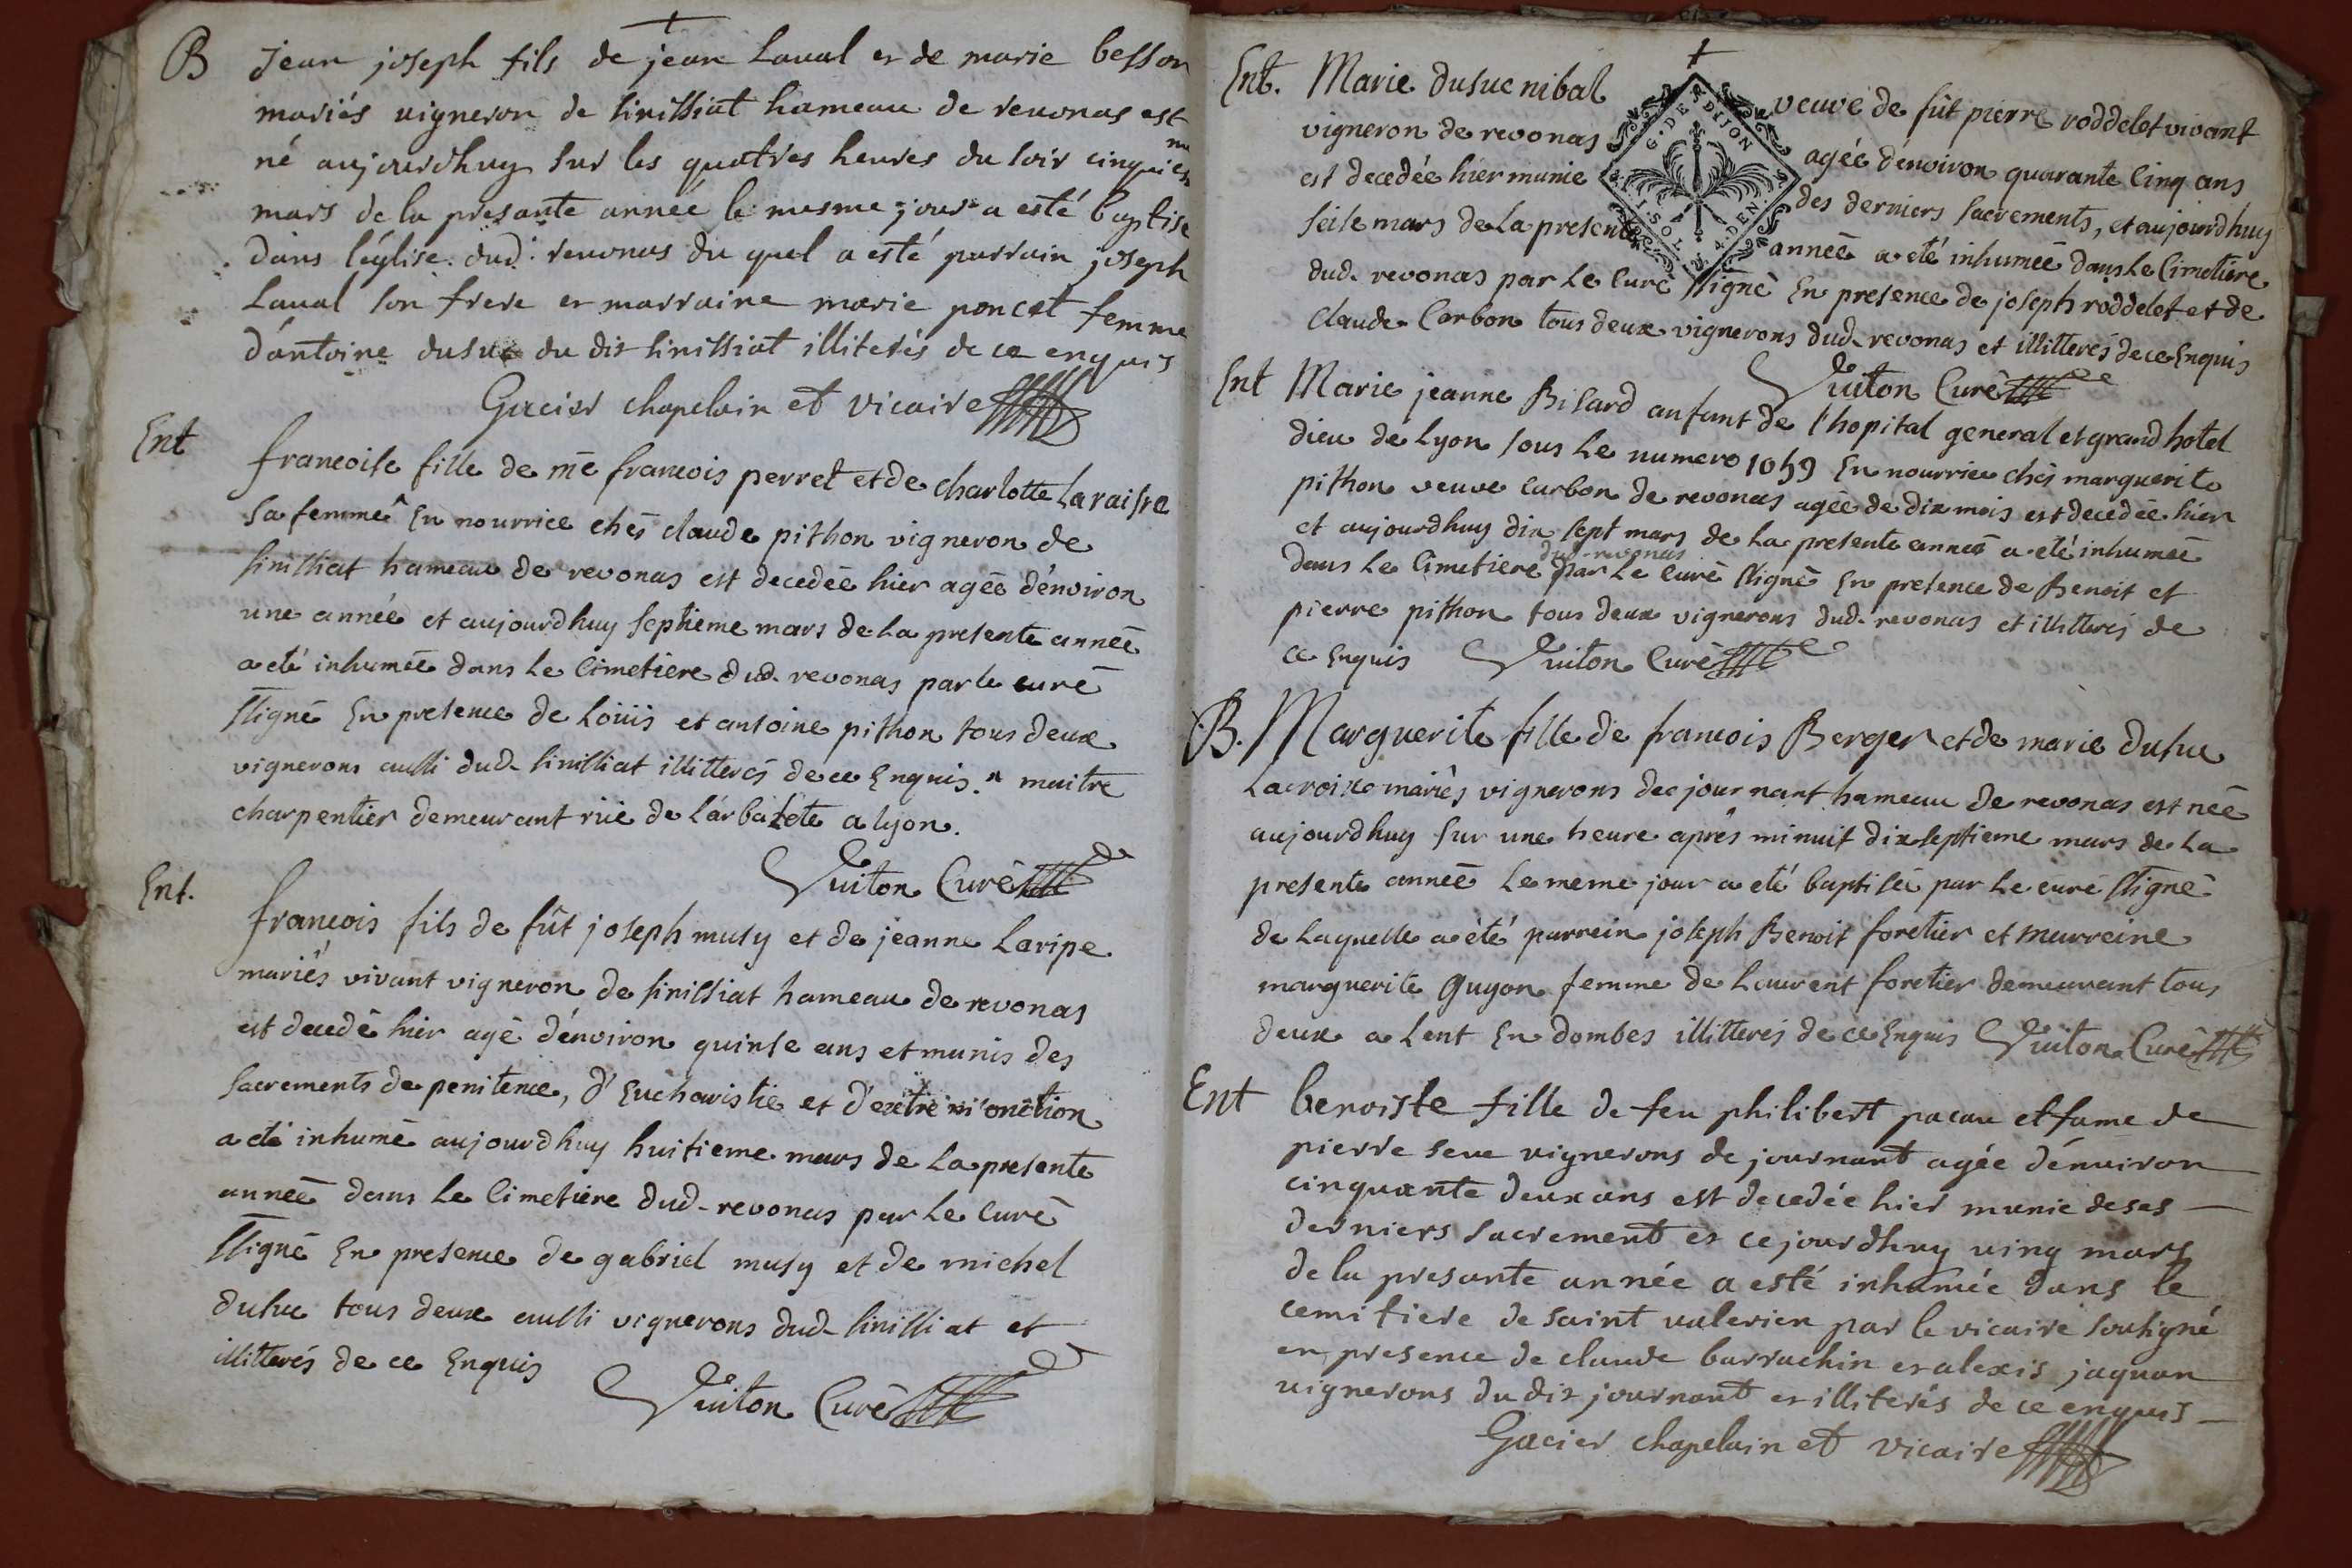 B Jean joseph fils de jean Laual er de marie besson
mariés uigneron de sinissiat hameau de reuonas est
né aujourdhuy sur les quatres heures du soir cinquiesme
mars de la presante année le mesme jour a esté baptisé
dans l'église dud. reuonas du quel a esté parrain joseph
Laual son frere er marraine marie poncet femme
d'antoine dusuc du dit sinissiat illiterés de ce enquis
Gacier chapelain et vicaire
Ent francoise fille de me francois perret et de charlotte Laraisre
sa femme En nourrice chés claude pithon vigneron de
sinissiat hameau de revonas est decedée hier agée d'environ
une année et aujourdhuy septieme mars de La presente année
a eté inhumée dans Le Cimetiere dud. revonas par le curé
ssigné En presence de Loüis et antoine pithon tous deux
vignerons aussi dud. sinissiat illitterés de ce Enquis. " maitre
charpentier demeurant rüe de l'arbalete a lyon.
Vuiton Curé
Ent. francois fils de fût joseph musy et de jeanne Laripe
mariés vivant vigneron de sinissiat hameau de revonas
est decedé hier agé d'environ quinse ans et munis des
sacrements de penitence, d'Eucharistie et d'extre m'onction
a eté inhumé aujourdhuy huitieme mars de La presente
année dans Le Cimetiere dud. revonas par Le Curé
ssigné En presence de gabriel musy et de michel
dusuc tous deux aussi vignerons dud. sinissiat et
illitterés de ce Enquis
Vuiton Curé
Ent. Marie dusuc nibal veuve de fût pierre roddelet vivant
vigneron de revonas agée d'environ quarante Cinq ans
est decedée hier munie des derniers sacrements, et aujourdhuy
seise mars de La presente année a eté inhumée dans Le Cimetiere
dud. revonas par Le Curé ssigné En presence de joseph roddelet et de
Claude Carbon tous deux vignerons dud. revonas et illitterés de ce Enquis
G. DE DIJON
I. SOL 4. DEN.
Vuiton Curé
Ent Marie jeanne Bisard anfant de l'hopital general et grand hotel
dieu de Lyon sous Le numero 1059 En nourrice chés marguerite
pithon veuve carbon de revonas agée de dix mois est decedée hier
et aujourdhuy dix sept mars de La presente année a eté inhumée
dud. revonas
dans Le Cimetiere par Le Curé ssigné En presence de Benoit et
pierre pithon tous deux vignerons dud. revonas et illitterés de
ce Enquis Vuiton Curé
B. Marguerite fille de francois Berger et de marie dusuc
Lacroix mariés vignerons de journant hameau de revonas est née
aujourdhuy sur une heure aprés minuit dix septieme mars de La
presente année Le meme jour a eté baptisée par Le curé ssigné
de Laquelle a été parrein joseph Benoit foretier et marreine
marguerite guyon femme de Laurent foretier demeurant tous
deux a Lent En dombes illitterés de ce Enquis Vuiton Curé
Ent benoiste fille de feu philibert pacau et fame de
pierre seue uignerons de journant agée d'enuiron
cinquante deux ans est decedée hier munie de ses
derniers sacrement er ce jourdhuy uing mars
de la presante année a esté inhumée dans le
cemitiere de saint ualerien par le vicaire sousigné
en presence de claude barrachin er alexis jaquan
uignerons du dit journant er illiterés de ce enquis
Gacier chapelain et vicaire